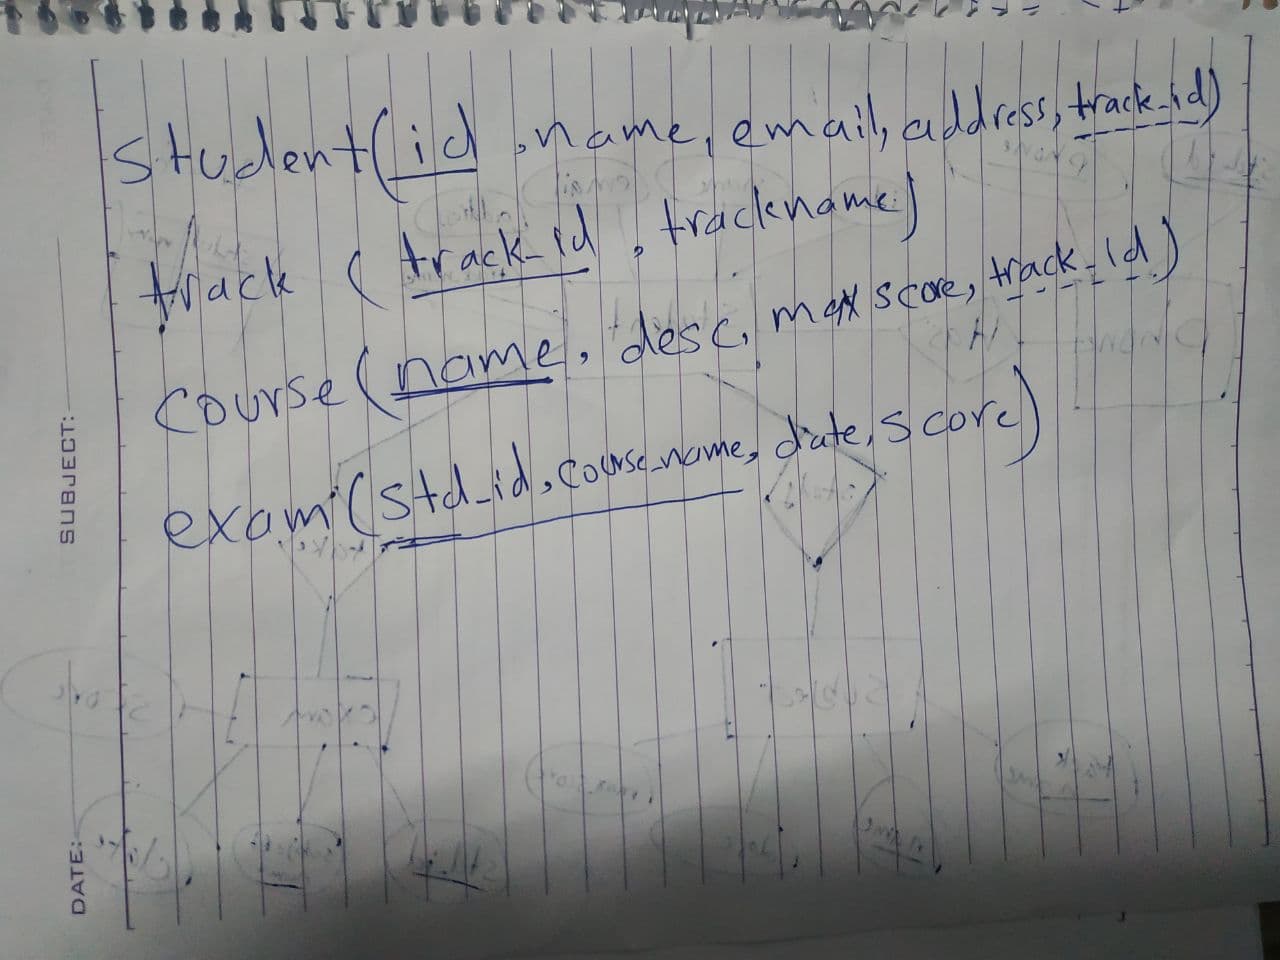 Student(id, name, email, address, track_id)
track (track_id, trackname)
course(name, desc, max score, track_id)
exam(std_id, course_name, date, score)
SUBJECT:
DATE: